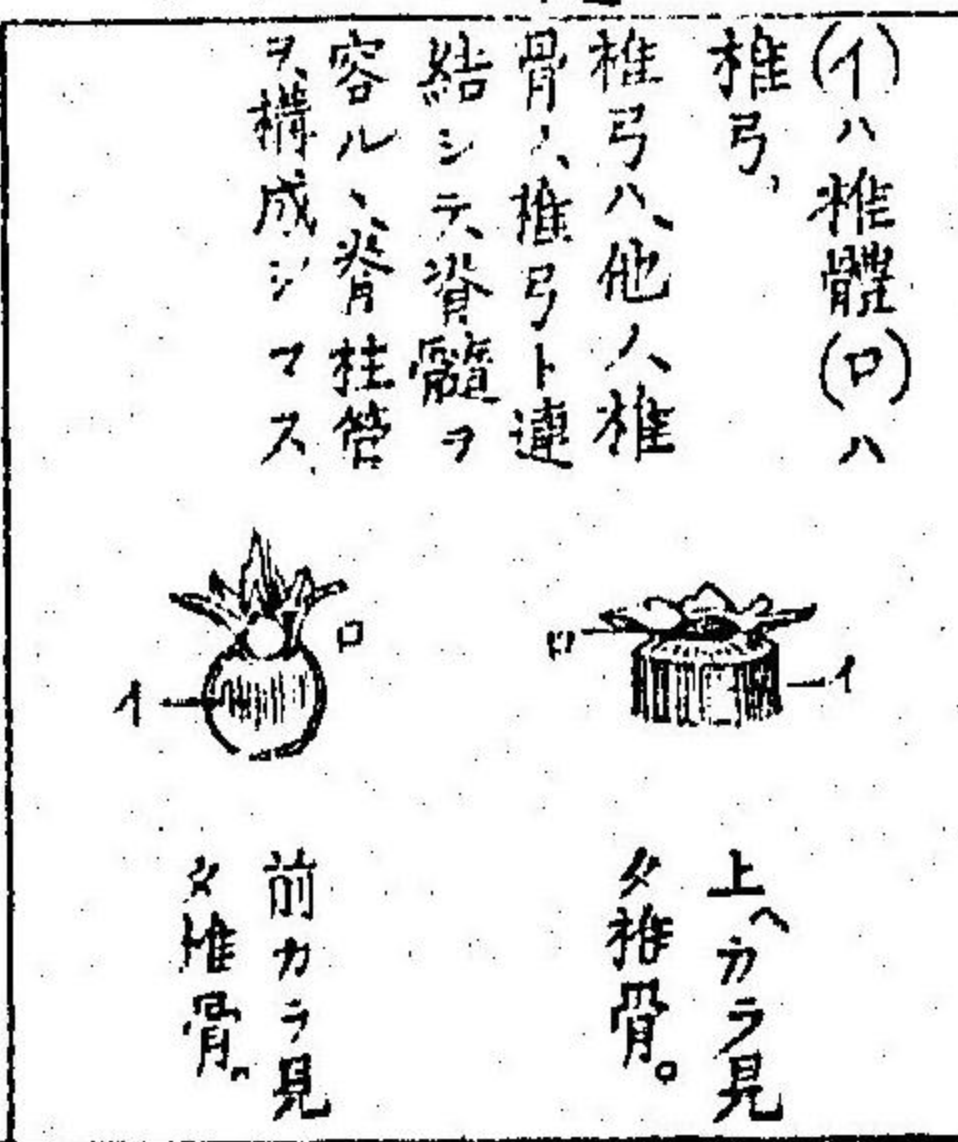 (イ)ハ椎體(ロ)ハ
椎弓、
椎弓ハ、他ノ人椎
骨ノ、椎弓ト連
結シテ、脊髓ヲ
容ルヽ、脊柱管
ヲ、構成シマス
ロ
イ
上ヘカラ見
タ椎骨。
ロ
イ
前カラ見
タ椎骨。